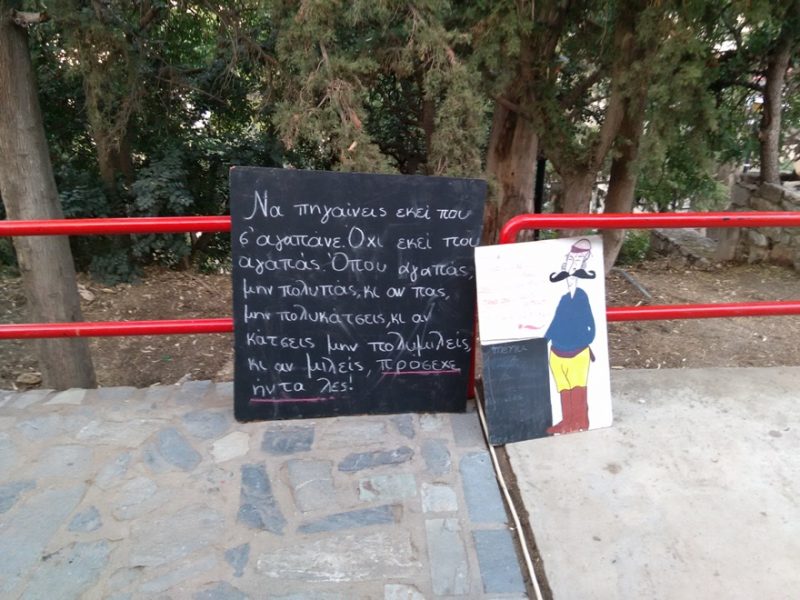 Να πηγαίνεις εκεί που
σ' αγαπάνε. Όχι εκεί που
αγαπάς. Όπου αγαπάς,
μην πολυπάς, κι αν πας,
μην πολυκάτσεις, κι αν
κάτσεις μην πολυμιλείς,
κι αν μιλείς, πρόσεχε
ήντα λες!